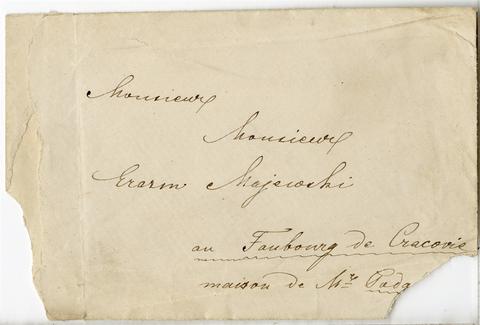 Monsieur
Monsieur
Erazm Majewski
au Faubourg de Cracovie
maison de Mr